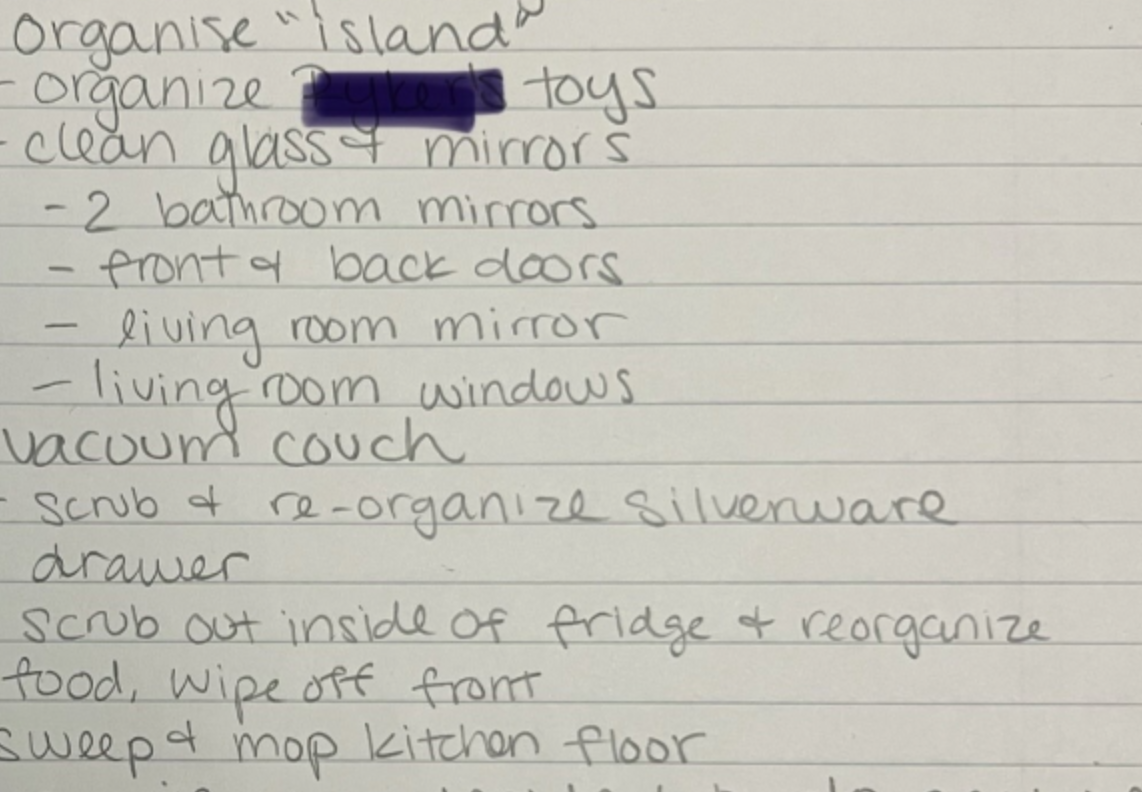 organise "island"
- organize toys
- clean glass & mirrors
- 2 bathroom mirrors
- front & back doors
- living room mirror
- living room windows
vacuum couch
- scrub & re-organize silverware
drawer
scrub out inside of fridge & reorganize
food, wipe off front
sweep & mop kitchen floor